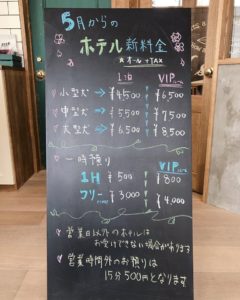 5月からの
ホテル新料金
★オール+TAX
1泊 VIPルーム
小型犬→¥4500 ¥6500
中型犬→¥5500 ¥7500
大型犬→¥6500 ¥8500
一時預り VIP
1H ¥500 ¥800
フリー ¥3000 ¥4,000
◇営業日以外のホテルは
お受けできない場合があります
◇営業時間外のお預りは
15分500円となります